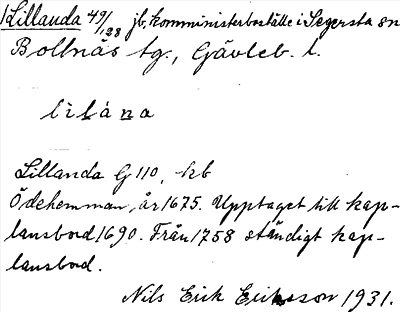 Lillanda 49/128 jb, komministerboställe i Segersta sn
Bollnäs tg., Gävleb. l.
lilána
Lillanda G 110, kb
Ödehemman, år 1675. Upptaget till kap-
lansbord 1690. Från 1758 ständigt kap-
lansbord.
Nils Erik Eriksson 1931.